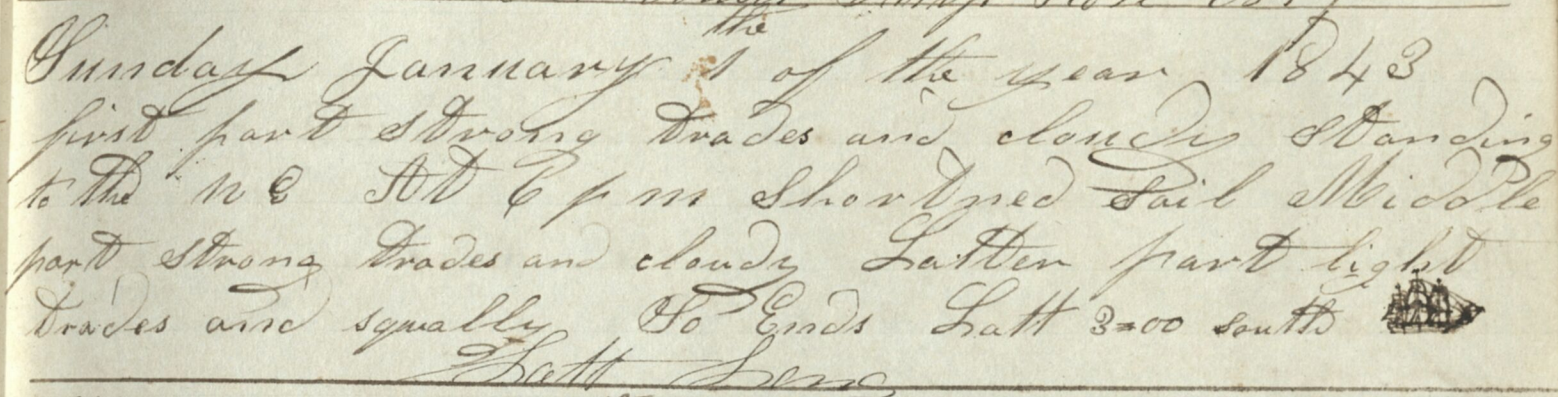 Sunday January the 1 of the year 1843
first part strong trades and cloudy standing
to the N E At 6 pm shortned sail Middle
part strong trades and cloudy Latter part light
trades and squally So Ends Latt 3=00 south
Latt Long